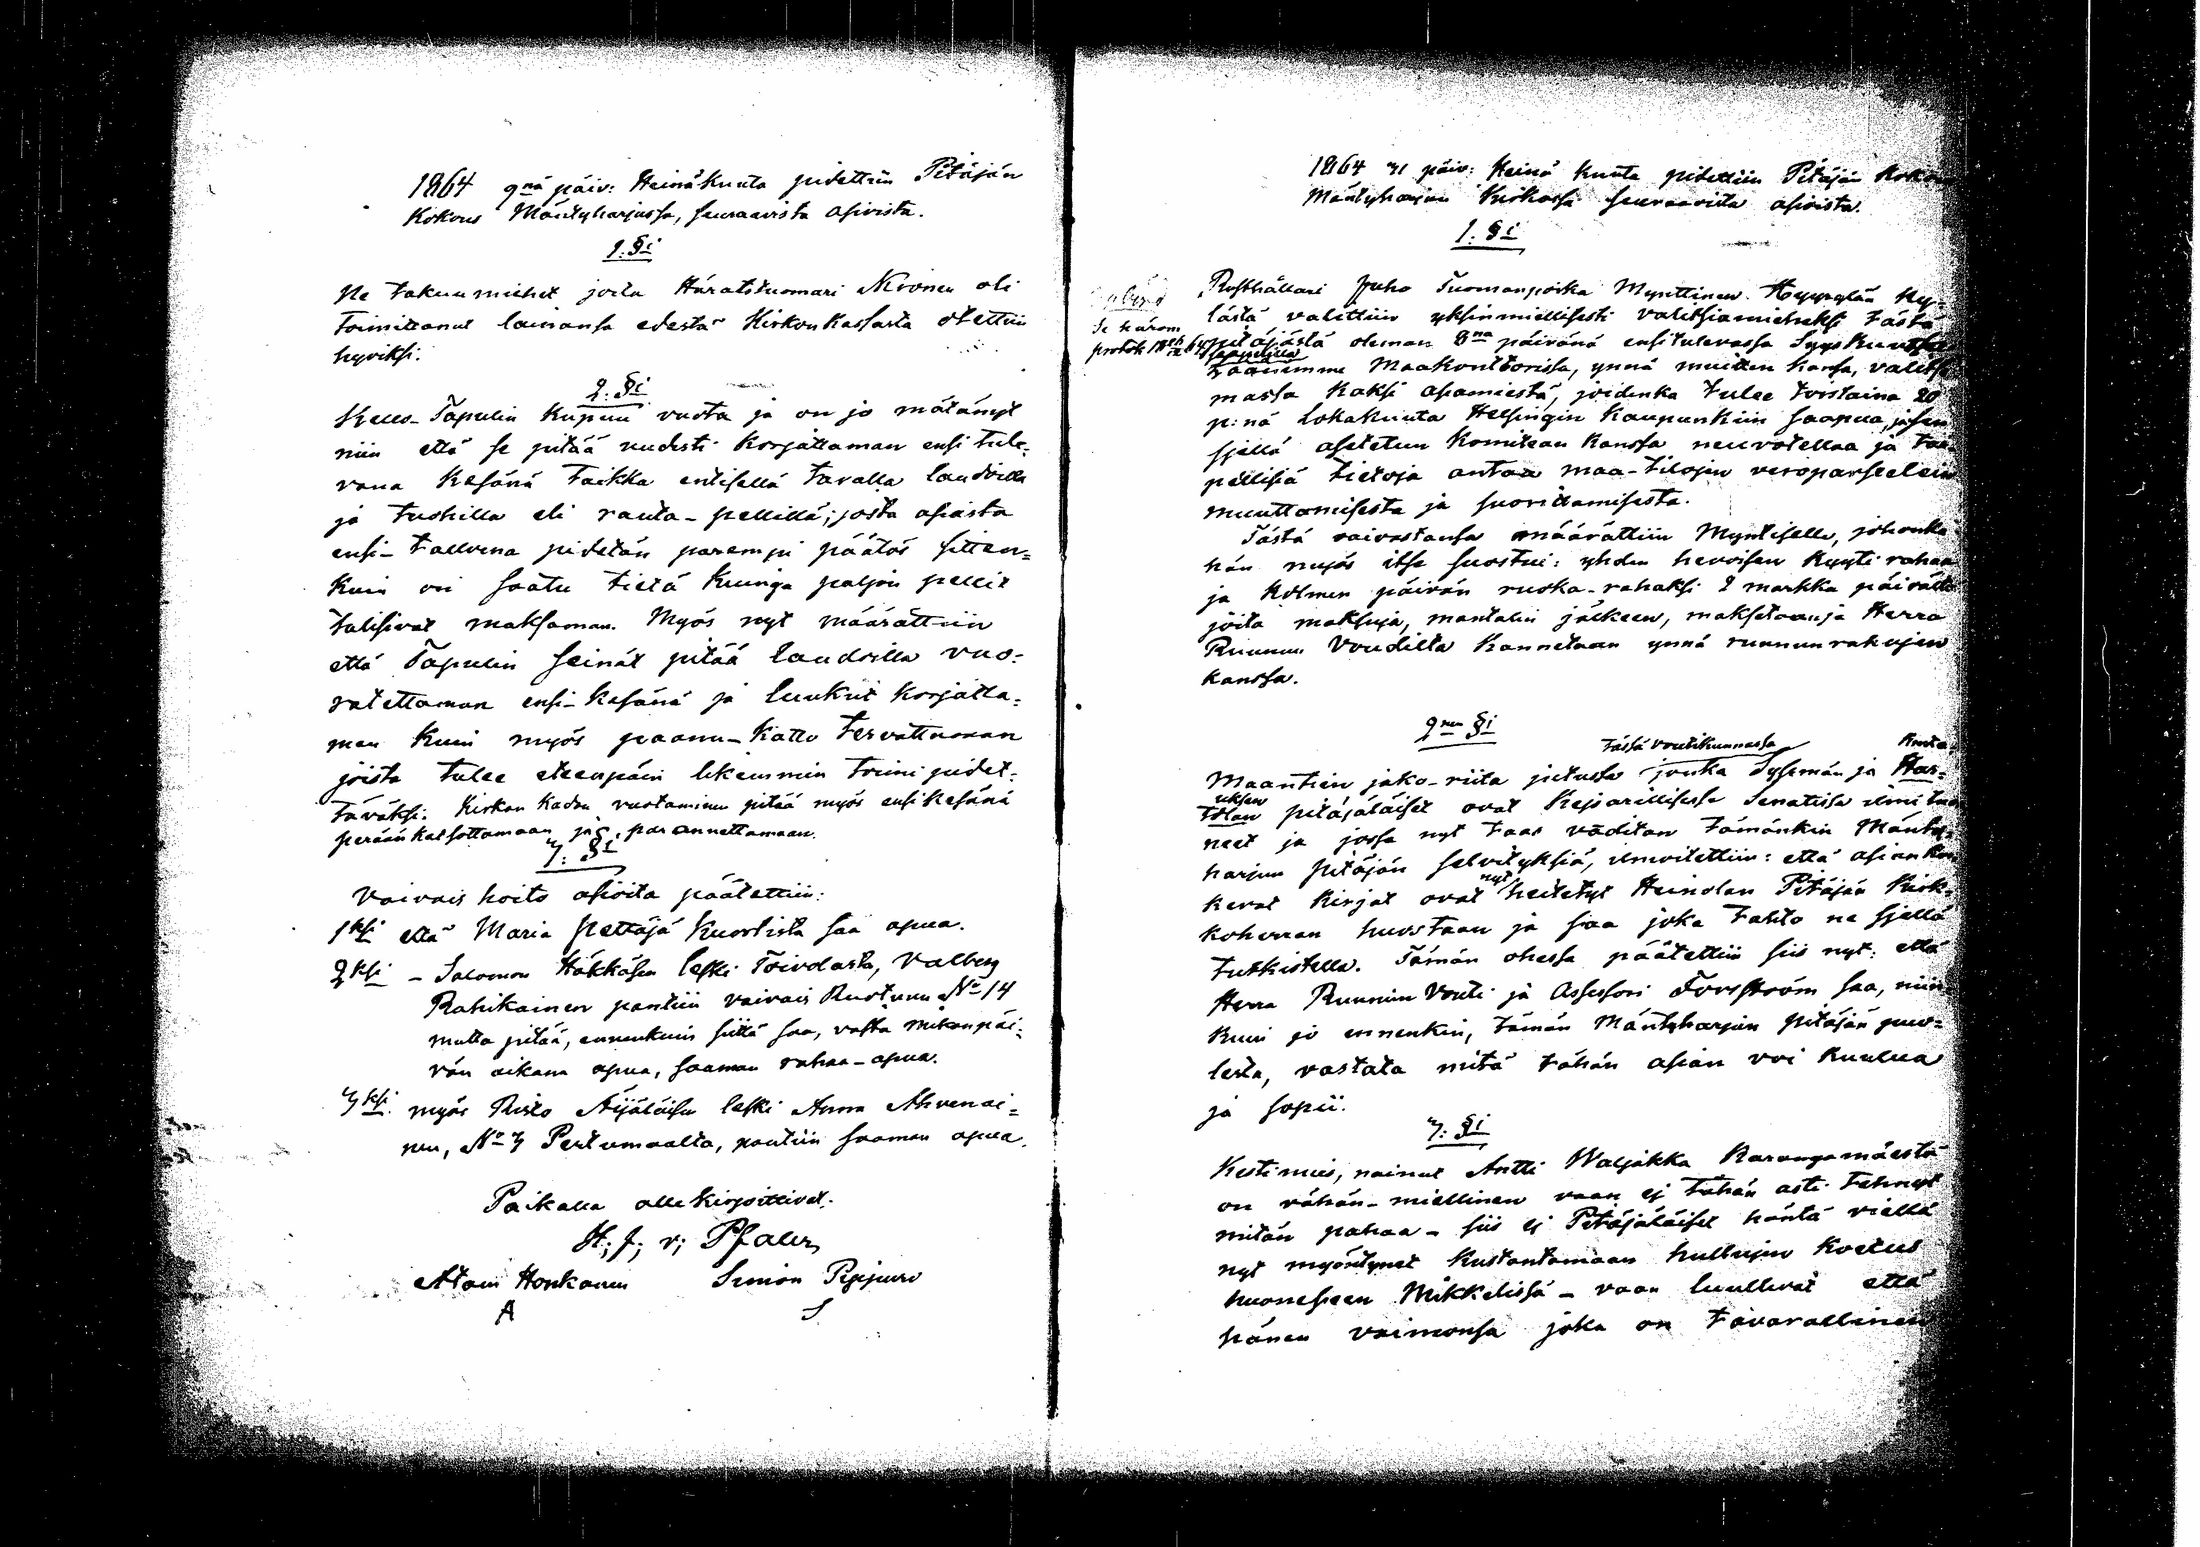 1864 9nä päiv: Heinäkuuta pidettiin Pitäjän
Kokous Mäntyharjussa, seuraavista asioista.
1. §i
Ne takuumiehet joita Häratstuomari Nironen oli
toimittanut lainansa edestä Kirkon Kassasta otettiin
hyviksi.
2. §i
Tapulin Kupuu vuota ja on jo mätänyt
niin että se pitää uudesti korjattaman ensi tule-
vana Kesänä taikka entisellä tavalla laudoilla
ja tuohilla eli rauta-pellillä; josta asiasta
ensi-talvena pidetän parempi päätös sitten-
kuin on saatu tietä kuinga paljon pellit
tulisivat maksaman. Myös nyt määrättiin
että Tapulin seinät pitää laudoilla vuo-
ratettaman ensi-kesänä ja luukut korjatta-
man kuin myös paanu-katto tervattaman
joista tulee eteenpäin likemmin toimi pidet-
täväksi. Kirkon Kadon vuotaminen pitää myös ensi kesänä
perään katsottamaan ja parannettamaan.
3. §i
Vaivais hoito asioita päätettiin:
1ksi että Maria Pettäjä Kuortista saa apua.
2ksi - Salomon Häkkäsen leski Toivolasta, Valborg
Rahikainen pantiin vaivais Ruotuun No 14
mutta pitää, ennenkuin siitä saa, vasta Mikonpäi-
vän aikana apua, saaman rahaa-apua.
3ksi myös Risto Äijäläisen leski Anna Ahvenai-
nen, No 3 Pertumaalta, pantiin saaman apua.
Paikalla allekirjoittivat.
H; J; v; Pfaler
Atam Honkanen Simon Pyijuuro
A S
1864 31 päiv: Heinä kuuta pidettiin Pitäjän Kokous
Mäntyharjun Kirkossa seuraavista asioista.
1. §i
Rusthållari Juho Tuomanpoika Mynttinen Hyyrylän ky-
lästä valittiin yksinmielisesti valitsiamieheksi tästä
Se härom
protok 18
pitäjästä oleman 8na päivänä ensitulevassa Syyskuussa
läänimme Maakonttorissa, ynnä muitten kansa, valitse-
massa kaksi asiamiestä, joidenka tulee toistaina 20
p:nä lokakuuta Helsingin Kaupunkiin saapua, ja sen
sjellä asetetun Komitean kanssa neuvotellaa ja tar-
pellisiä tietoja antaa maa-tilojen veroparseelein
muuttamisesta ja suorittamisesta.
Tästä vaivastansa määrättiin Myntiselle, johonka
hän myös itse suostui: yhden hevoisen kyyti-rahan
ja kolmen päivän ruoka-rahaksi 2 markka päivältä
joita maksuja, mantalin jälkeen, maksetaan ja Herra
Ruunun Voudilta kannetaan ynnä ruunun rahojen
kanssa.
2nen §i
tässä voutikunnassa
Maantien jako-riita jutussa jonka Sysmän ja Har-
tolan pitäjäläiset ovat Kejsarillisessa Senatissa ilmi tuo-
neet ja jossa nyt taas vaditan tämänkin Mänty-
harjun pitäjän selvityksiä, ilmoitettiin: että asian kos-
kevat kirjat ovat nyt heitetyt Heinolan Pitäjän Kirk-
koherran huostaan ja saa joka tahto ne sjellä
tutkistella. Tämän ohessa päätettiin siis nyt: että
Herra Ruunun Vouti ja Assessori Forsström saa, niin
kuin jo ennenkin, tämän Mäntyharjun pitäjän puo-
lesta, vastata mitä tähän asian voi kuulua
ja sopii.
3. §i
Kestimies, nainut Antti Waljakka Karangamäestä
on vähän-miellinen vaan ej tähän asti tehnyt
mitän pahaa - siis ej Pitäjäläiset häntä viellä
nyt myöntynet kustantamaan hullujen koetus
huoneseen Mikkelissä - vaan luullivat että
hänen vaimonsa joka on tavarallinen